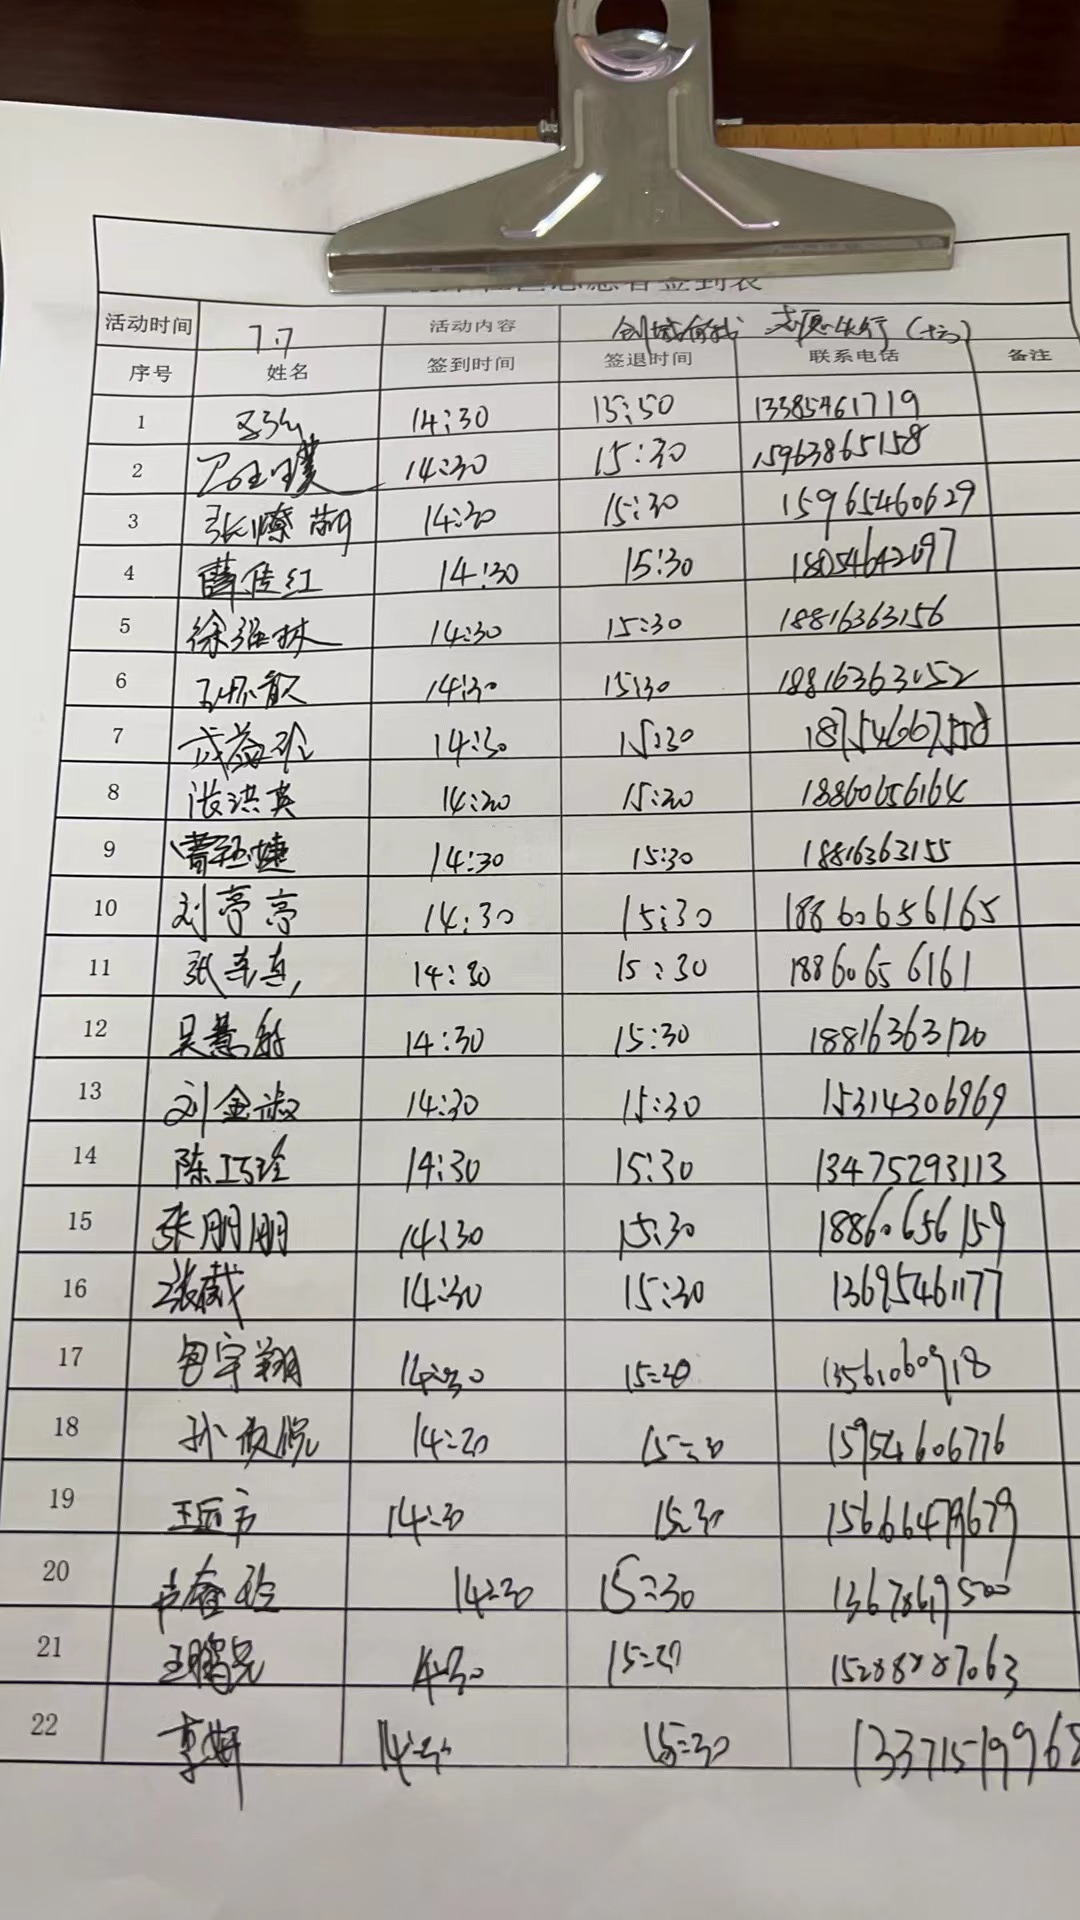 社区志愿者签到表
活动时间 7.7 活动内容 创城有我 志愿先行(十六)
序号 姓名 签到时间 签退时间 联系电话 备注
1 14:30 15:50 13385461719
2 14:30 15:30 15963865158
3 张燎 14:30 15:30 15965460629
4 曹传红 14:30 15:30 18054642097
5 徐强林 14:30 15:30 18816363156
6 14:30 15:30 18816363052
7 14:30 15:30
8 张洪英 14:30 15:30 18860656164
9 曹 婕 14:30 15:30 18816363155
10 刘亭亭 14:30 15:30 18860656165
11 张 14:30 15:30 18860656161
12 吴慧敏 14:30 15:30 18816363120
13 刘金淑 14:30 15:30 15314306969
14 陈巧玲 14:30 15:30 13475293113
15 张朋朋 14:30 15:30 18860656159
16 张威 14:30 15:30 13695461177
17 包宇翔 14:30 15:30 13561060918
18 孙 14:30 15:30 15954606776
19 王 14:30 15:30 15666479679
20 卢春玲 14:30 15:30 13678619500
21 王鹏 14:30 15:30 15288887063
22 李妍 14:30 15:30 1337151996